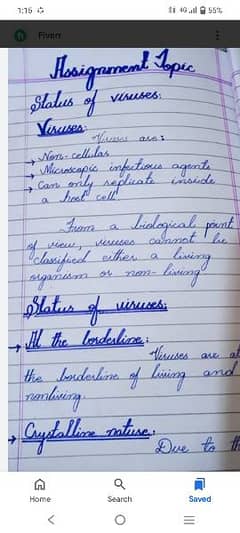 1:15
4G
55%
Fiverr
Assignment Topic
Status of viruses:
Viruses:
Viruses are:
→ Non-cellular
→ Microscopic infectious agents
→ Can only replicate inside
a host cell
From a biological point
of view, viruses cannot be
classified either a living
organism or non-living
Status of viruses:
→ At the borderline:
Viruses are at
the borderline of living and
nonliving.
→ Crystalline nature:
Due to th
Home
Search
Saved